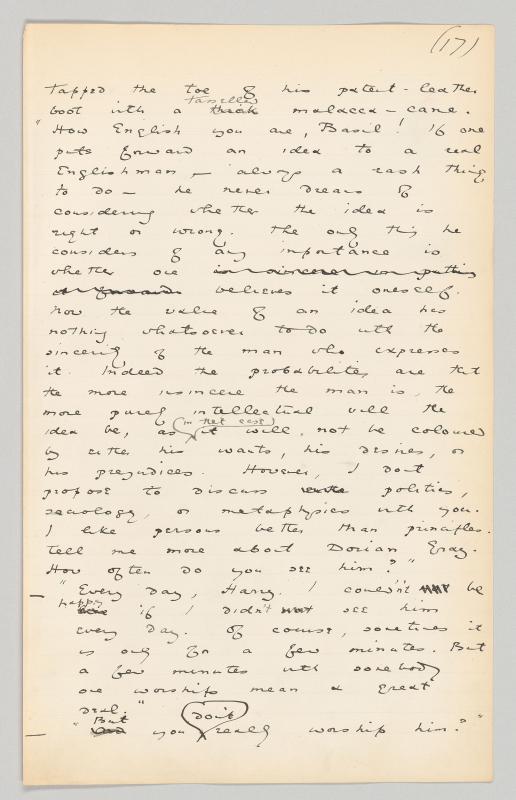 (17)
tapped the toe of his patent-leather
tasselled
boot with a thick malacca-cane.
"How English you are, Basil! If one
puts forward an idea to a real
Englishman, — always a rash thing
to do — he never dreams of
considering whether the idea is
right or wrong. The only thing he
considers of any importance is
whether one is sincere in putting
it forward believes it oneself.
Now the value of an idea has
nothing whatsoever to do with the
sincerity of the man who expresses
it. Indeed the probabilities are that
the more insincere the man is, the
more purely intellectual will the
(in that case)
idea be, as it will not be coloured
by either his wants, his desires, or
his prejudices. However, I dont
propose to discuss politics,
sociology, or metaphysics with you.
I like persons better than principles.
Tell me more about Dorian Gray.
How often do you see him?"
— "Every day, Harry. I couldn't be
happy
if I didn't not see him
every day. Of course, sometimes it
is only for a few minutes. But
a few minutes with somebody
one worships mean a great
deal."
"But dont
— you really worship him?"